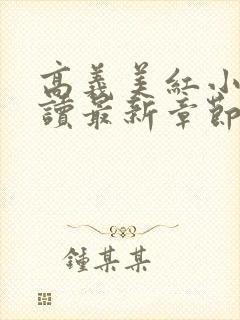 高義美紅小
讀最新章節
鍾某某